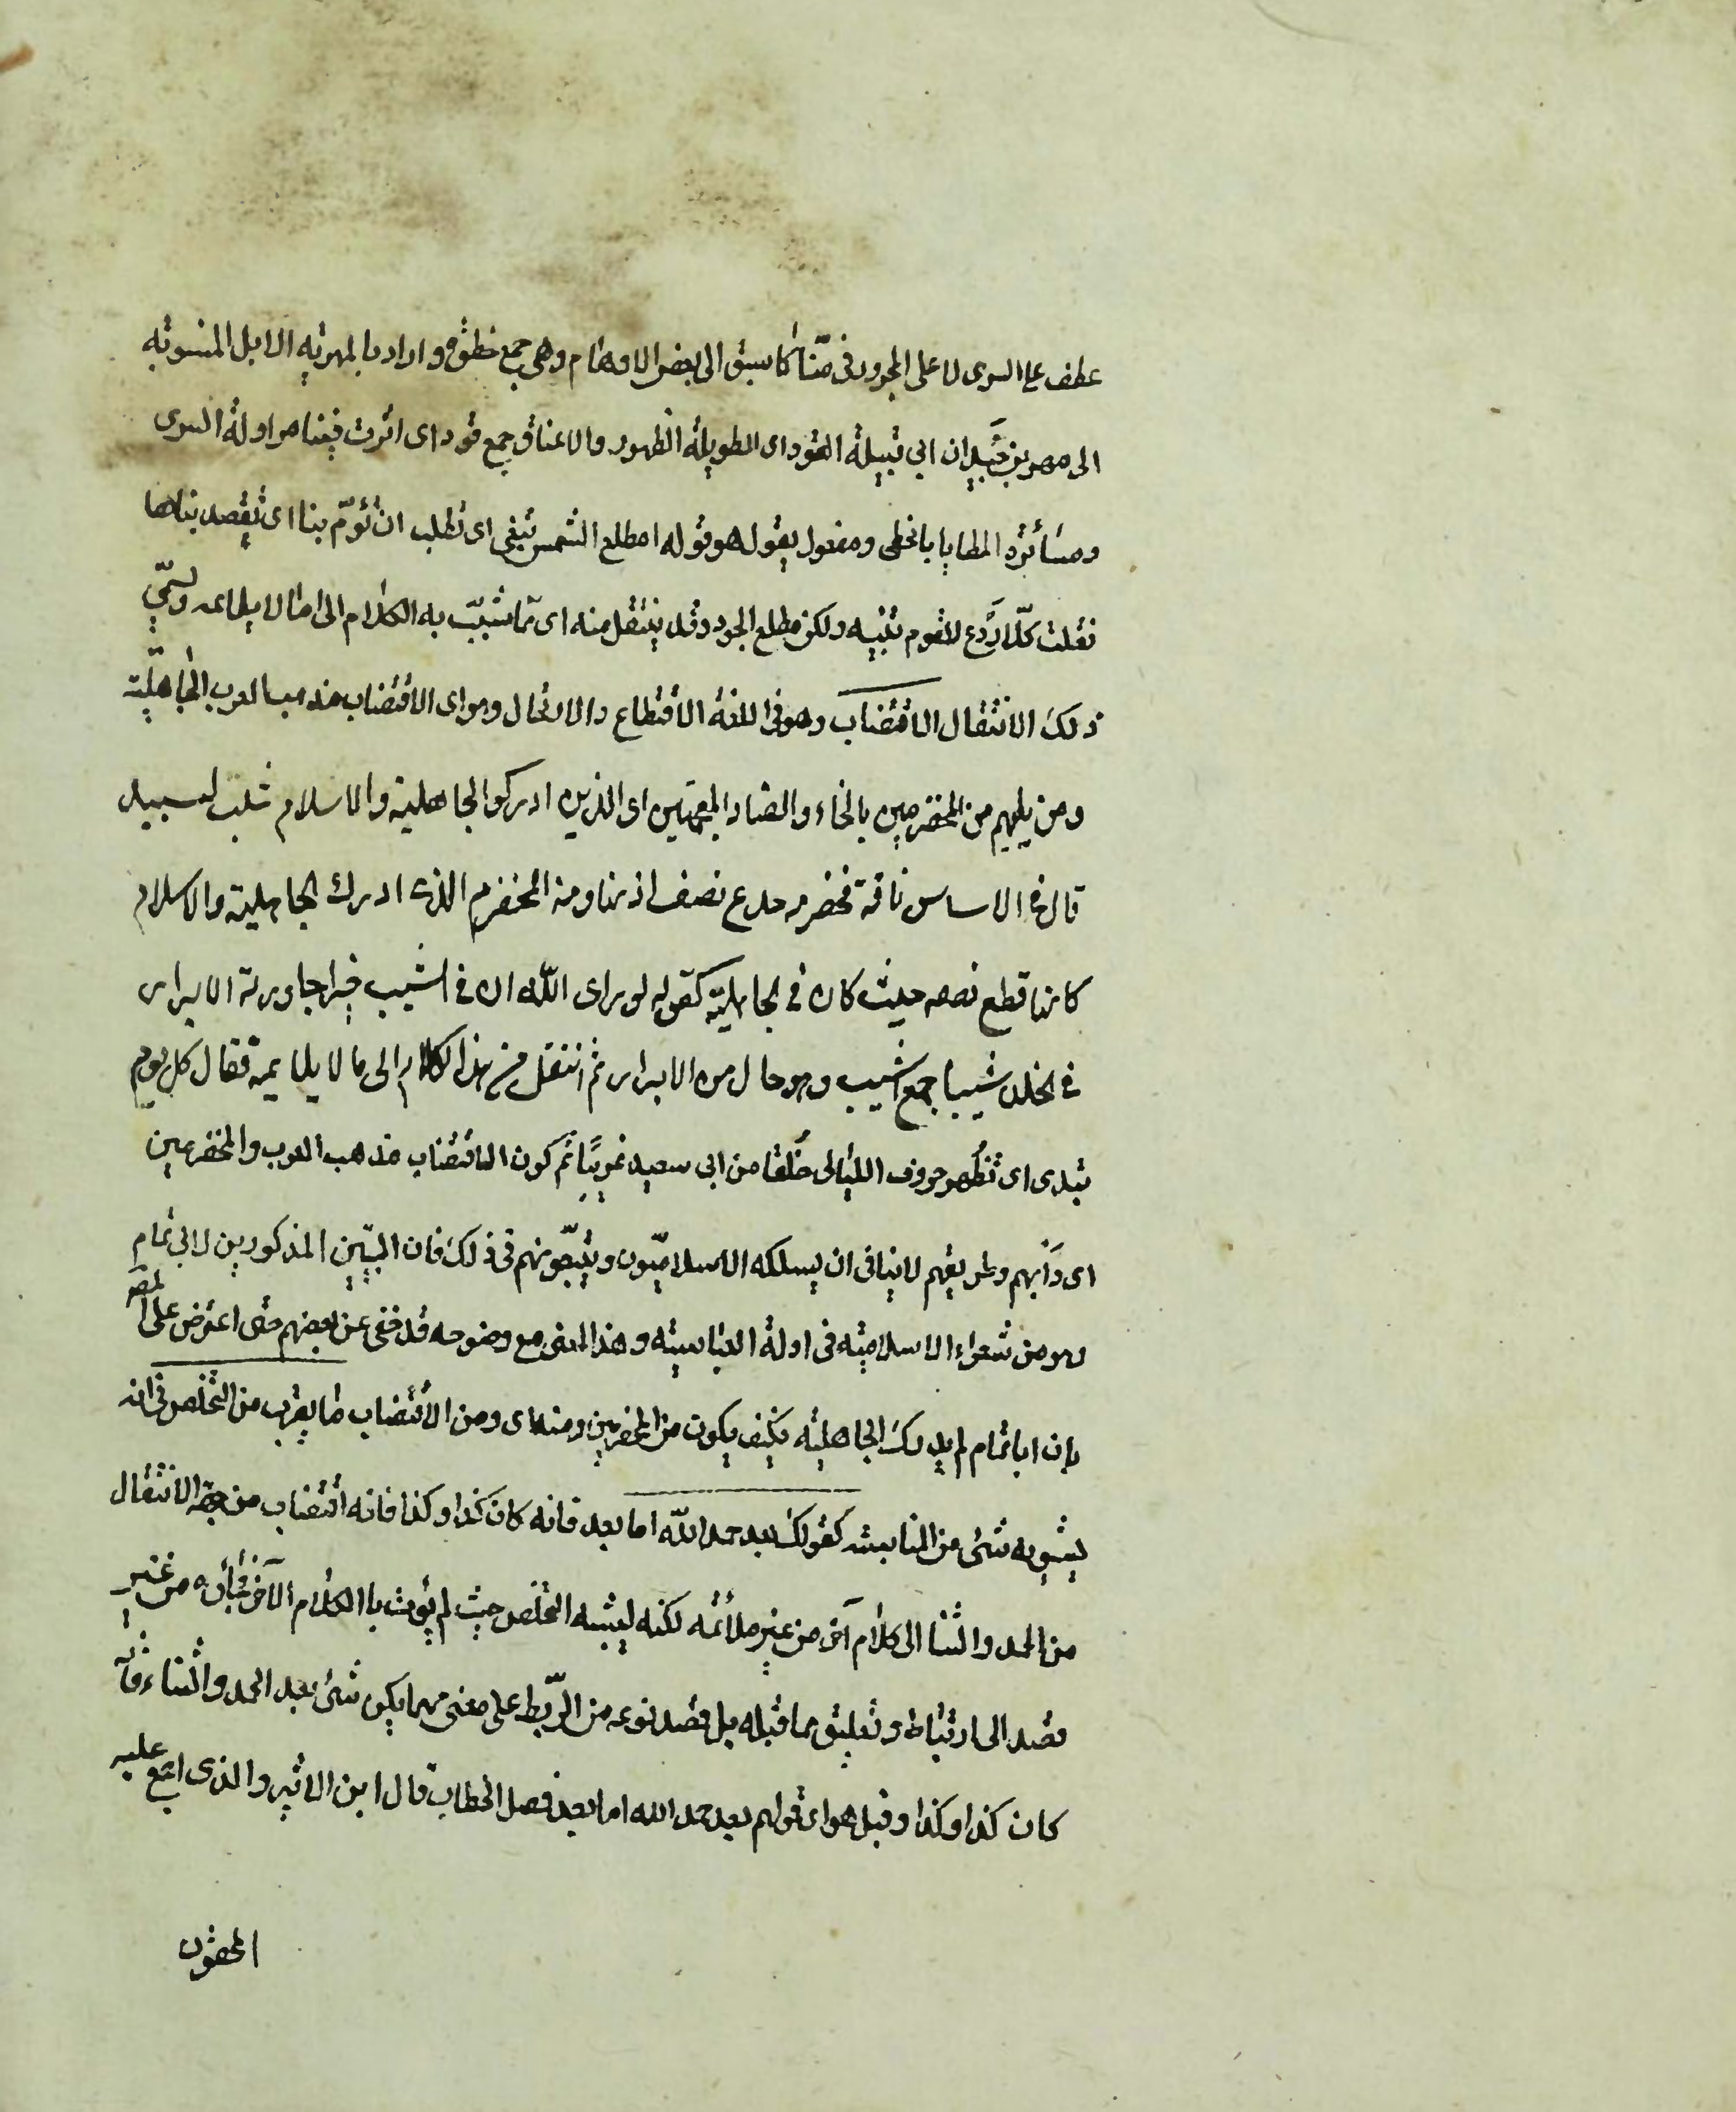 عطف علی السری لا علی المجرور فی منّا کما سبق الی بعض الاوهام وهی جمع خطوة و اراد بالمهریه الابل المنسوبه
الی مهر بن حَیدان ابی قبیلة القود ای الطویلة الظهور والاعناق جمع قود ای اثرت فینا مزاولة السری
ومسائرة المطایا بالخطی ومفعول یقول هو قوله امطلع الشمس تبغی ای تطلب ان تؤمّ بنا ای تقصد بنا
فقلت کلّا ردع للقوم تنبیه ولکن مطلع الجود وقد ینتقل منه ای ممّا شبّب به الکلام الی ما لا یلایمه ویسمّی
ذلک الانتقال الاقتضاب وهو فی اللغة الاقتطاع والارتحال وهو ای الاقتضاب مذهب العرب الجاهلیّة
ومن یلیهم من المخضرمین بالخاء والضاد المعجمتین ای الذین ادرکوا الجاهلیة والاسلام مثل لبید
قال فی الاساس ناقة مخضرمه جدع نصف اذنها ومنه المخضرم الذی ادرك الجاهلیة والاسلام
کانما قطع نصفه حیث کان فی الجاهلیّة کقوله لو رای اللّه ان فی الشیب خیرا جاورته الابرار
فی الخلد شیبا جمع اشیب وهو حال من الابرار ثم انتقل من هذا الکلام الی ما لا یلایمه فقال کل یوم
تبدی ای تُظهر صروف اللیالی خُلُقا من ابی سعید غریبًا ثم کون الاقتضاب مذهب العرب والمخضرمین
ای دَأبهم وطریقهم لا ینافی ان یسلکه الاسلامیّون ویتبعونهم فی ذلک فان البیتین المذکورین لابی تمام
وهو من شعراء الاسلامیّه فی اولة العباسیّه وهذا المعنی مع وضوحه قد خفی عن بعضهم حتی اعترض علی المصر
بان ابا تمام لم یدرک الجاهلیّه فکیف یکون من المخضرمین ومنه ای ومن الاقتضاب ما یقرب من التخلص فی انه
یشوبه شئ من المناسبه کقولک بعد حمد اللّه اما بعد فانه کان کذا وکذا فانه اقتضاب من جهة الانتقال
من الحمد والثنا الی کلام آخر من غیر ملائمه لکنه یشبه التخلص حیث لم یؤت بالکلام الآخر فجأة من غیر
قصد الی ارتباط وتعلیق بما قبله بل قصد نوع من الرّبط علی معنی مهما یکن شئ بعد الحمد والثناء فانه
کان کذا وکذا وقیل هو ای قولهم بعد حمد الله اما بعد فصل الخطاب قال ابن الاثیر والذی اجمع علیه
المحققون